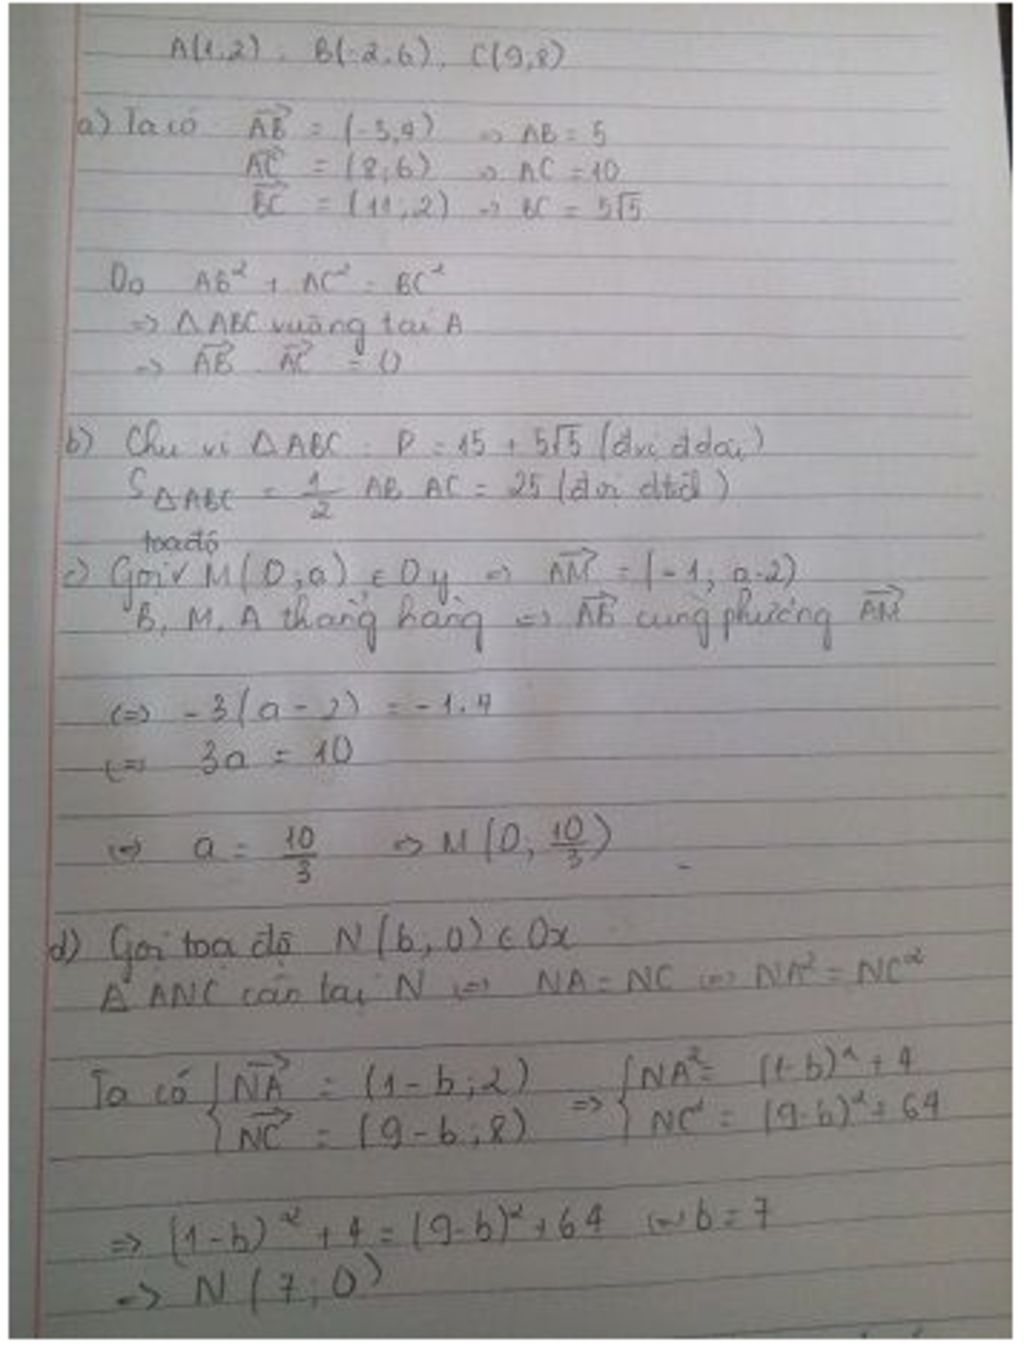 A(1,2), B(-2,6), C(9,8)
a) Ta có AB = (-3,4) => AB = 5
AC = (8,6) => AC = 10
BC = (11,2) => BC = 5√5
Do AB² + AC² = BC²
=> ΔABC vuông tại A
=> AB . AC = 0
b) Chu vi ΔABC : P = 15 + 5√5 (đvị đdài)
SΔABC = 1/2 AB AC = 25 (đvị dtích)
toạ độ
c) Gọi √ M(0,a) ∈ Oy => AM = (-1; a-2)
B, M, A thẳng hàng => AB cùng phương AM
<=> -3(a-2) = -1.4
<=> 3a = 10
<=> a = 10/3 => M(0, 10/3)
d) Gọi toạ độ N(b,0) ∈ Ox
Δ ANC cân tại N <=> NA = NC <=> NA² = NC²
Ta có { NA = (1-b;2) => { NA² = (1-b)² + 4
NC = (9-b;8) NC² = (9-b)² + 64
=> (1-b)² + 4 = (9-b)² + 64 <=> b = 7
=> N(7,0)